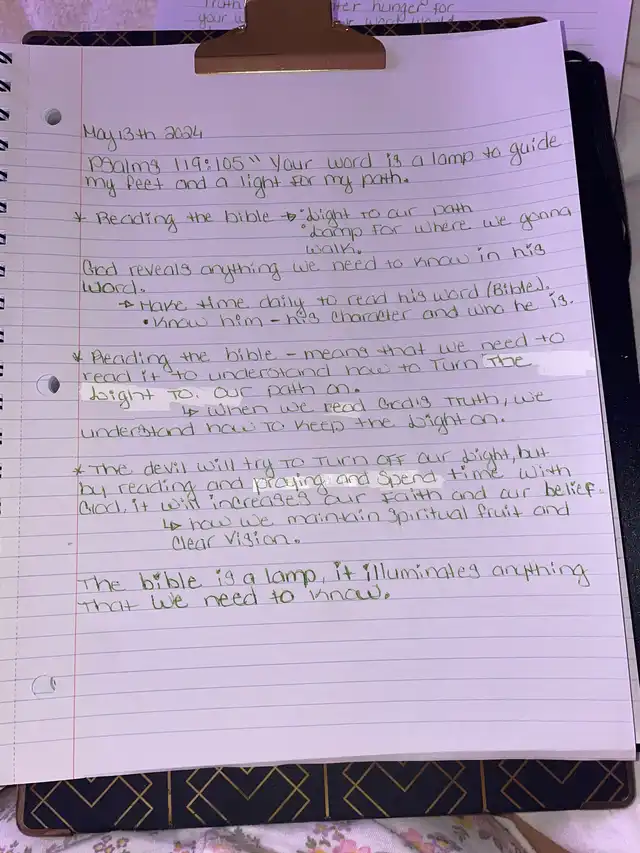 Truth hunger for
your w
May 13th 2024
Psalms 119:105 " Your word is a lamp to guide
my feet and a light for my path.
* Reading the bible → • Light to our path
• Lamp for where we gonna
walk.
God reveals anything we need to know in his
word.
→ Make time daily to read his word (Bible).
• Know him - his character and who he is.
* Reading the bible - means that we need to
read it to understand how to Turn The
Light To. our path on.
↳ when we read God's Truth, we
understand how to keep the Light on.
* The devil will try To Turn off our Light, but
by reading and praying and spend time with
God, it will increases our faith and our belief.
↳ how we maintain spiritual fruit and
clear vision.
The bible is a lamp, it illuminates anything
that we need to know.